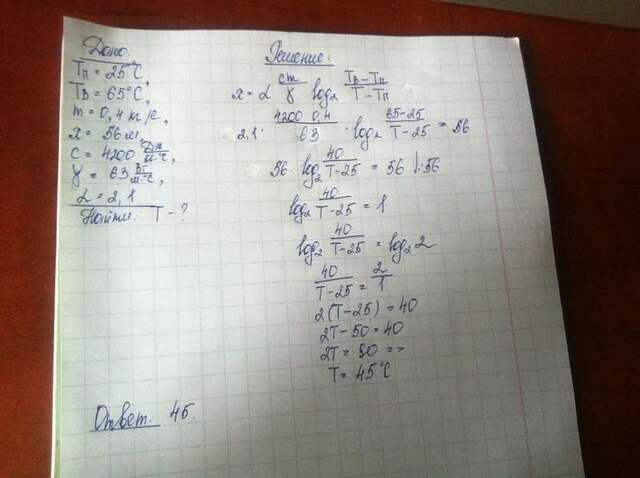 Дано:
Tп = 25°C,
Tв = 65°C,
m = 0,4 кг/с,
x = 56 м,
c = 4200 Дж/кг·°C,
γ = 63 Вт/м·°C,
α = 2,1
Найти: T - ?
Решение:
x = α cm/γ log₂ Tв-Tп/T-Tп
2,1 · 4200·0,4/63 · log₂ 65-25/T-25 = 56
56 · log₂ 40/T-25 = 56 |:56
log₂ 40/T-25 = 1
log₂ 40/T-25 = log₂ 2
40/T-25 = 2/1
2(T-25) = 40
2T - 50 = 40
2T = 90 =>
T = 45°C
Ответ. 45.